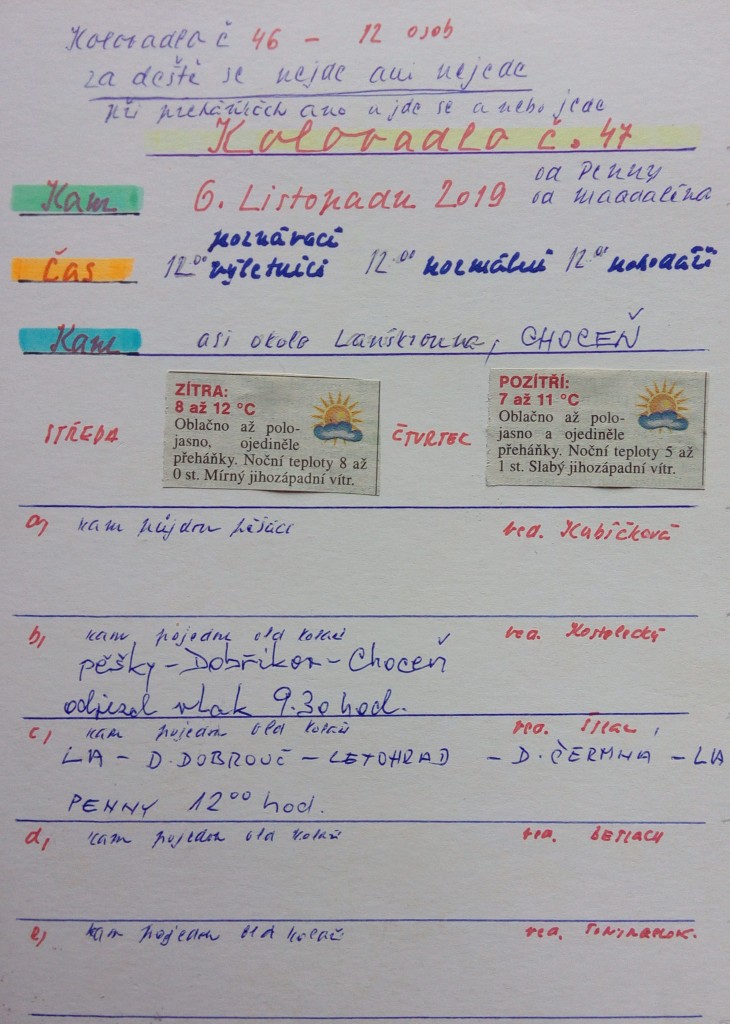 Koloradlo č 46 - 12 osob
za deště se nejde ani nejede
při přeháňkách ano njde se a nebo jede
Koloradlo č. 47
Kam 6. Listopadu 2019 od Penny
od Magdaléna
Čas 12.00 poznávací výletníci 12.00 normální 12.00 pohodáři
Kam asi okolo Lanškrouna, CHOCEŇ
STŘEDA
ZÍTRA:
8 až 12 °C
Oblačno až polo-
jasno, ojediněle
přeháňky. Noční teploty 8 až
0 st. Mírný jihozápadní vítr.
ČTVRTEK
POZÍTŘÍ:
7 až 11 °C
Oblačno až polo-
jasno a ojediněle
přeháňky. Noční teploty 5 až
1 st. Slabý jihozápadní vítr.
a) kam půjdou pěšáci ved. Kubíčková
b) kam pojedou old ved. Kostelecký
pěšky - Dobříkov - Choceň
odjezd vlak 9.30 hod.
c) kam pojedou old ved.
LA - D.DOBROUČ - LETOHRAD - D.ČERMNÁ - LA
PENNY 12 00 hod.
d) kam pojedou old ved.
e) kam pojedou old ved.